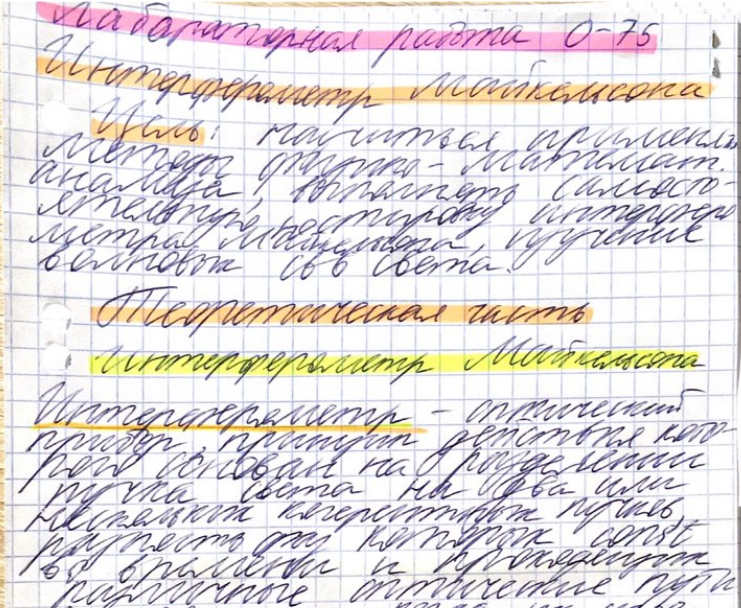 Лабараторная работа О-75
Интерферометр Майкельсона
Цель: научиться применять
методы физико-математ.
анализа, выполнять самосто-
ятельную юстировку интерферо
метра Майкельсона, изучение
волновых св-в света.
Теоретическая часть
Интерферометр Майкельсона
Интерферометр - оптический
прибор, принцип действия кото-
рого основан на разделении
пучка света на два или
несколько когерентных пучков,
разность фаз которых const
во времени и проходящих
различные оптические пути